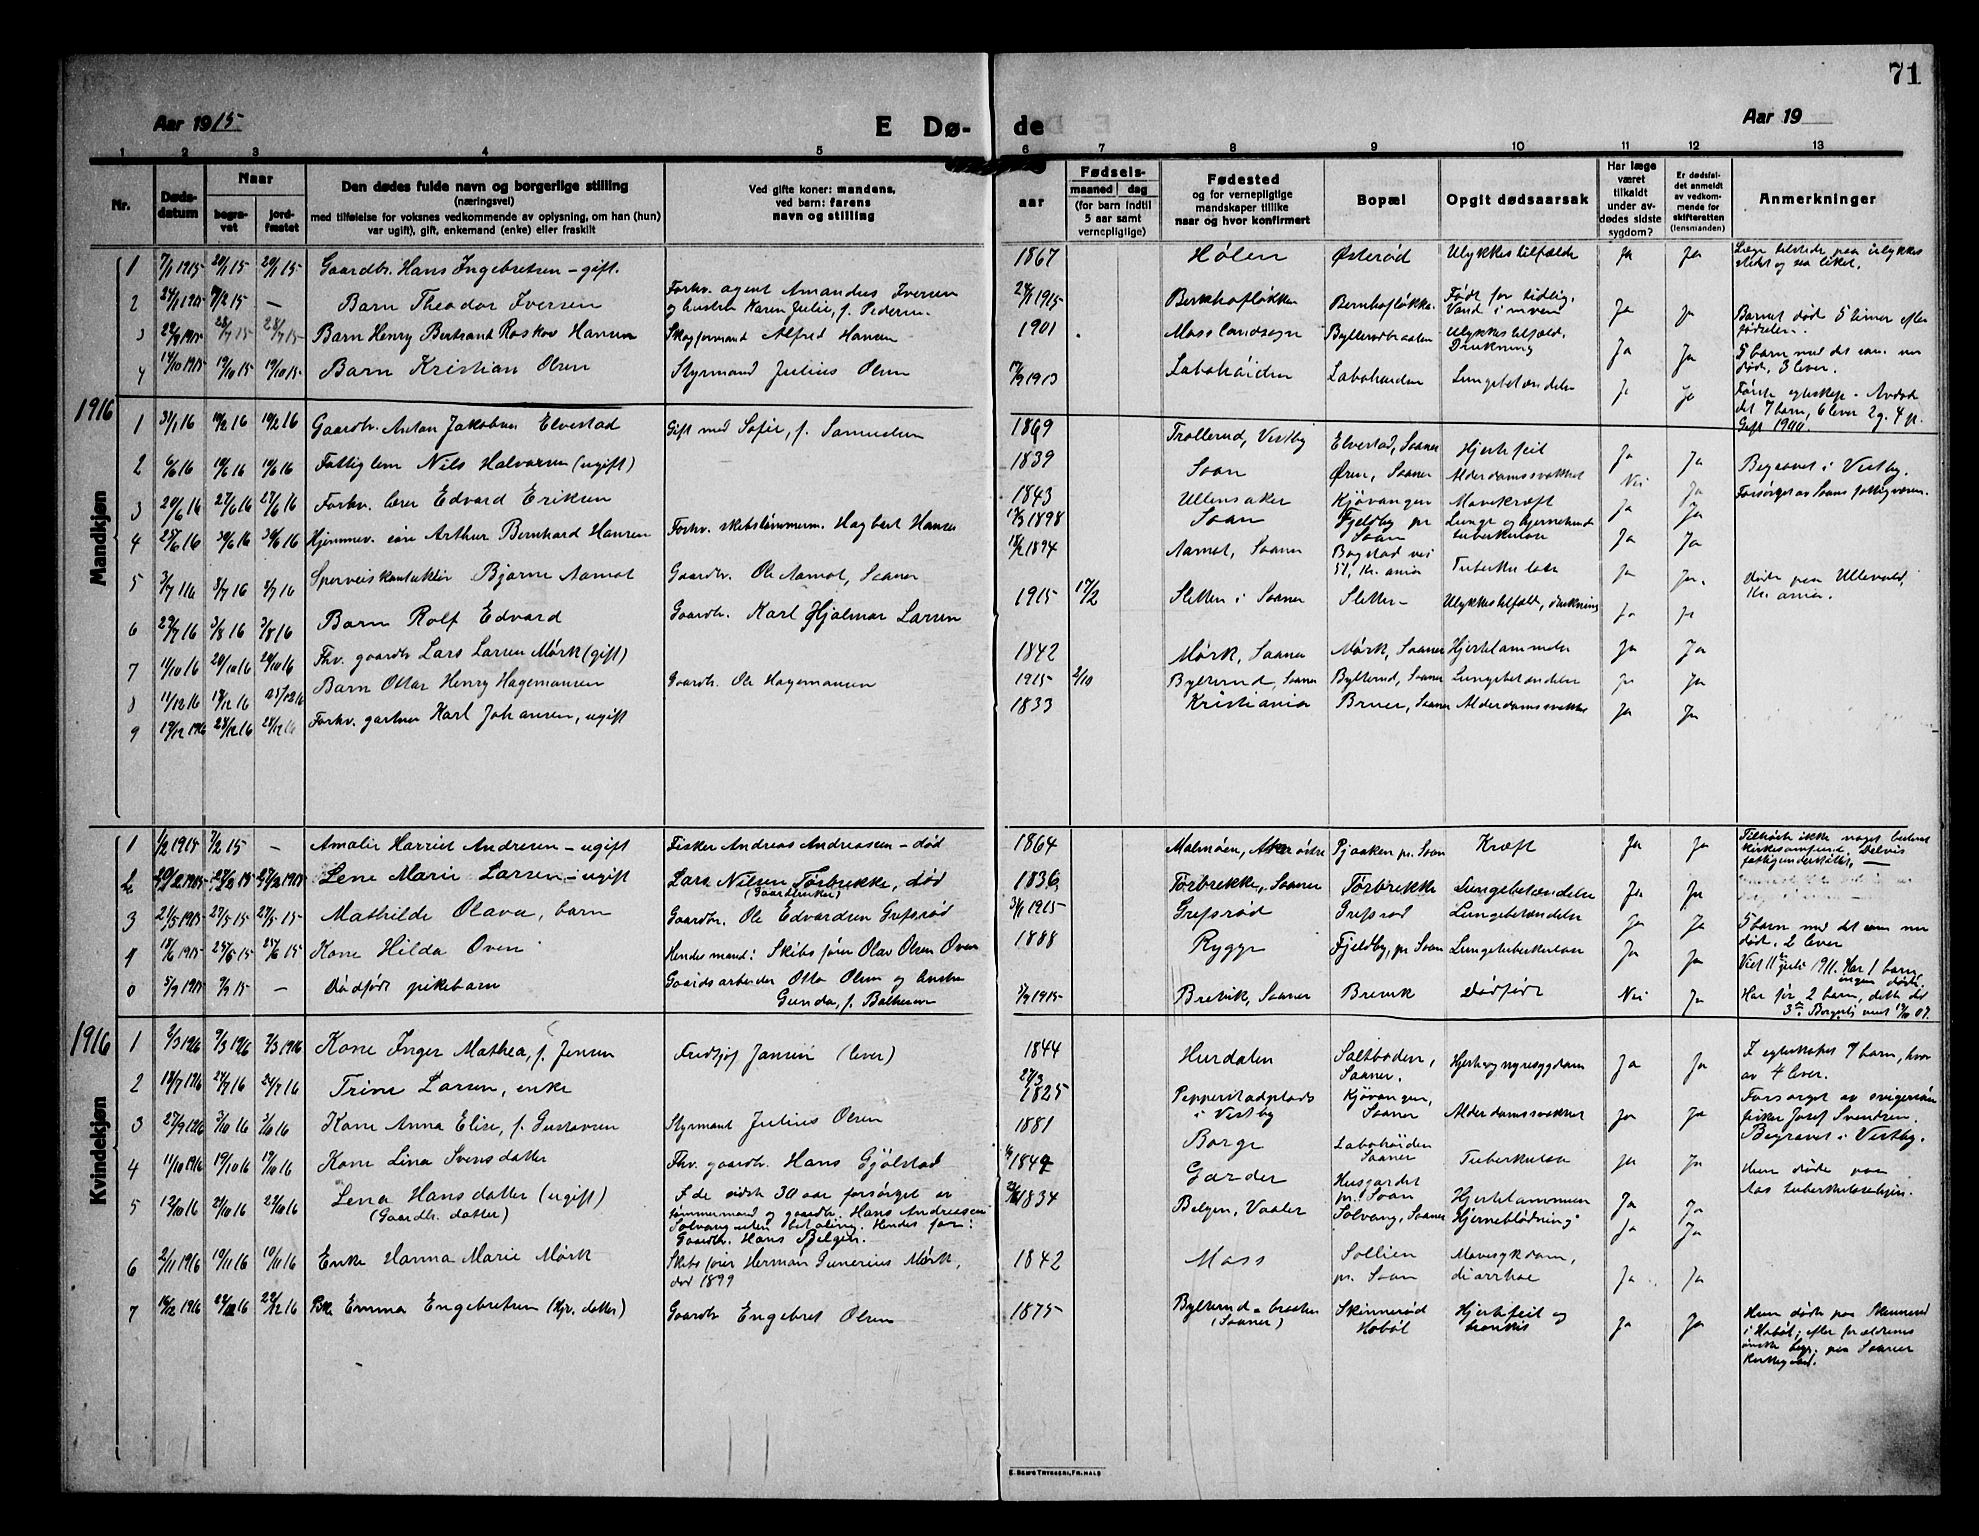 71
Aar 1915
E Dø-
de
Aar 19
1 2 3 4 5 6 7 8 9 10 11 12 13
Nr.
Døds-
datum
Naar
begra-
vet
jord-
fæstet
Den dødes fulde navn og borgerlige stilling
(næringsvei)
med tilføielse for voksnes vedkommende av oplysning, om han (hun)
var ugift), gift, enkemand (enke) eller fraskilt
Ved gifte koner: mandens,
ved barn: farens
navn og stilling
aar
Fødsels-
maaned dag
(for barn indtil
5 aar samt
vernepligtige)
Fødested
og for vernepligtige
mandskaper tillike
naar og hvor konfirmert
Bopæl
Opgit dødsaarsak
Har læge
været
tilkaldt
under av-
dødes sidste
sygdom?
Er dødsfal-
det anmeldt
av vedkom-
mende for
skifteretten
(lensmanden)
Anmerkninger
Mandkjøn
1 7/1 1915 20/1 15 20/1 15 Gaardbr. Hans Ingebretsen – gift. 1867 Hølen Østerød Ulykkestilfælde Ja Ja Læge tilstede paa ulykkes
stedet og saa liket.
2 24/1 1915 7/2 15 — Barn Theodor Iversen Forhv. agent Amandus Iversen
og hustru Karen Julie, f. Pedersen. 24/1 1915 Bernhofløkken Bernhofløkka Født for tidlig. Ja Ja Barnet døde 5 timer efter
fødselen.
3 15 15 Barn Henry Bertrand Roskov Hansen Skogformand Alfred Hansen 1901 Moss landsogn Byllerudbraaten Ulykkestilfæld.
Drukning Ja Ja 5 barn med det som nu
døde, 3 lever.
4 14/10 1915 19/10 15 19/10 15 Barn Kristian Olsen Styrmand Julius Olsen 1913 Labohøiden Labohøiden Lungebetændelse Ja Ja
1916
1 31/1 16 10/2 16 10/2 16 Gaardbr. Anton Jakobsen Elvestad Gift med Sofie, f. Samuelsen 1869 Trollerud, Vestby Elvestad, Saaner Hjertefeil Ja Ja Begravet i Vestby.
2 6/6 16 10/6 16 10/6 16 Fattiglem Nils Halvorsen (ugift) 1839 Soon Øren, Saaner Alderdomssvakhet Nei Ja Forsørget av Soons fattigvæsen.
3 20/6 16 27/6 16 27/6 16 Forhv. lærer Edvard Eriksen 1843 Ullensaker Kjøvangen Mavekræft Ja Ja
4 25/6 16 30/6 16 30/6 16 Hjemmev. søn Arthur Bernhard Hansen Forhv. skibstømmerm. Hagbert Hansen 1898 Soon Fjeldby pr
Soon Lunge og hjerne
tuberkulose Ja Ja
5 3/7 16 8/7 16 8/7 16 Sporveiskonduktør Bjarne Aamot Gaardbr. Ole Aamot, Saaner 1894 Aamot, Saaner Bogstad vei
51, Kr.ania Tuberkulose Ja Ja. døde paa Ullevold
Kr.ania.
6 29/7 16 3/8 16 3/8 16 Barn Rolf Edvard Gaardbr. Karl Hjalmar Larsen 1915 17/2 Sletten i Saaner Sletten – Ulykkestilfæld, drukning Ja Ja
7 11/10 16 20/10 16 20/10 16 Fhv. gaardbr Lars Larsen Mørk (gift) 1842 Mørk, Saaner Mørk, Saaner Hjertelammelse Ja Ja
8 11/12 16 18/12 16 25/12 16 Barn Ottar Henry Hagemansen Gaardbr. Ole Hagemansen 1915 2/10 Byllerud, Saaner Byllerud, Saaner Lungebetændelse Ja Ja
9 1916 28/12 16 28/12 16 Forhv. gartner Karl Johansen, ugift 1833 Kristiania Bruer, Saaner Alderdomssvakhet Ja Ja
Kvindekjøn
1 1/2 1915 7/2 15 — Amalie Harriet Andresen – ugift Fisker Andreas Andreassen – død 1864 Malmøen, Aker Pjaaken pr. Soon Kræft Ja Ja Tilhørte ikke noget bestemt
kirkesamfund. Delvis
fattigunderstøttet, —
2 Lene Marie Larsen – ugift Lars Nilsen Torbrekke, død
(Gaardbruker) 1836 Torbrekke, Saaner Torbrekke Lungebetændelse Ja Ja
3 21/5 1915 27/5 15 27/5 15 Mathilde Olava, barn Gaardbr. Ole Edvardsen Grefsrød 3/1 1915 Grefsrød Grefsrød Lungebetændelse Ja Ja 5 barn med det som nu
døde, 2 lever
4 18/6 1915 25/6 15 25/6 15 Kone Hilda Oven Hendes mand: Skibsfører Olav Olsen Oven 1888 Rygge Fjeldby, pr. Soon Lungetuberkulose Ja Ja Viet 11te juli 1911. Har 1 barn,
ingen døde.
0 5/9 1915 7/9 15 — Dødfødt pikebarn Gaardsarbeider Otto Olsen og hustru
Gunda, f. 5/9 1915 Brevik, Saaner Brevik Dødfødt Nei Ja Har før 2 barn, dette det
3die. Borgerlig viet 07.
1916
1 2/3 1916 9/3 1916 9/3 1916 Kone Inger Mathea, f. Jensen Fredtjof Jansen (lever) 1844 Hurdalen Saltboden,
Saaner. Hjerte og nyresygdom Ja Ja I egteskapet 7 barn, hvor
av 4 lever.
2 18/7 1916 24/7 16 24/7 16 Trine Larsen, enke 27/3
1825 Pepperstadplads
i Vestby Kjøvangen,
Saaner Alderdomssvakhet Ja Ja Forsørget av svigersøn
fisker Josef Svendsen.
Begravet i Vestby.
3 27/9 1916 3/10 16 3/10 16 Kone Anna Elise, f. Gustavsen Styrmand Julius Olsen 1881 Borge Labohøiden
Saaner Tuberkulose Ja Ja Hun døde paa
Aas tuberkulosehjem.
4 11/10 1916 19/10 16 19/10 16 Kone Lina Svensdatter Fhv. gaardbr. Hans Gjølstad 1849 Garder Husgardet
pr. Soon Hjertelammelse Ja Ja
5 16 20/10 16 22/10 16 Lena Hansdatter (ugift)
(Gaardbr. datter) I de sidste 30 aar forsørget av
tømmermand og gaardbr. Hans Andreassen
Solvang uten betaling. Hendes far:
Gaardbr. Hans Belgen. 1834 Belgen, Vaaler Solvang, Saaner Hjerneblødning Ja Ja
6 2/11 1916 10/11 16 10/11 16 Enke Hanna Marie Mørk Skibsfører Herman Mørk,
død 1899 1842 Moss Sollien
pr. Soon Mavesykdom,
diarrhoe Ja Ja
7 1916 22/12 16 22/12 16 Emma Engebretsen (hjv. datter) Gaardbr Engebret Olsen 1875 Byllerudbraaten
(Saaner) Skinnerød
Hobøl Hjertefeil og
bronkit Ja Ja Hun døde paa
i Hobøl, efter forældrenes
ønske begr. paa Saaner
kirkegaard.
E. Sem's Trykkeri, Fr.hald